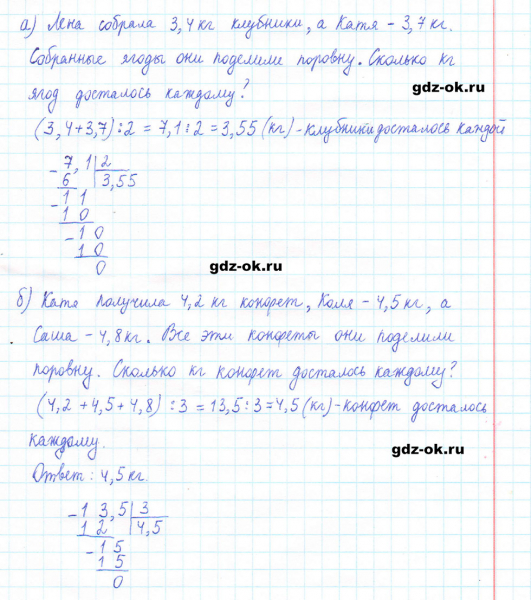 а) Лена собрала 3,4 кг клубники, а Катя - 3,7 кг.
Собранные ягоды они поделили поровну. Сколько кг
gdz-ok.ru
ягод досталось каждому?
(3,4+3,7):2 = 7,1:2 = 3,55 (кг) - клубники досталось каждой
- 7,1 | 2
6 | 3,55
- 1 1
1 0
- 1 0
1 0
0
gdz-ok.ru
б) Катя получила 4,2 кг конфет, Коля - 4,5 кг, а
Саша - 4,8 кг. Все эти конфеты они поделили
поровну. Сколько кг конфет досталось каждому?
(4,2 + 4,5 + 4,8) : 3 = 13,5 : 3 = 4,5 (кг) - конфет досталось
каждому.
gdz-ok.ru
Ответ: 4,5 кг.
- 1 3,5 | 3
1 2 | 4,5
- 1 5
1 5
0